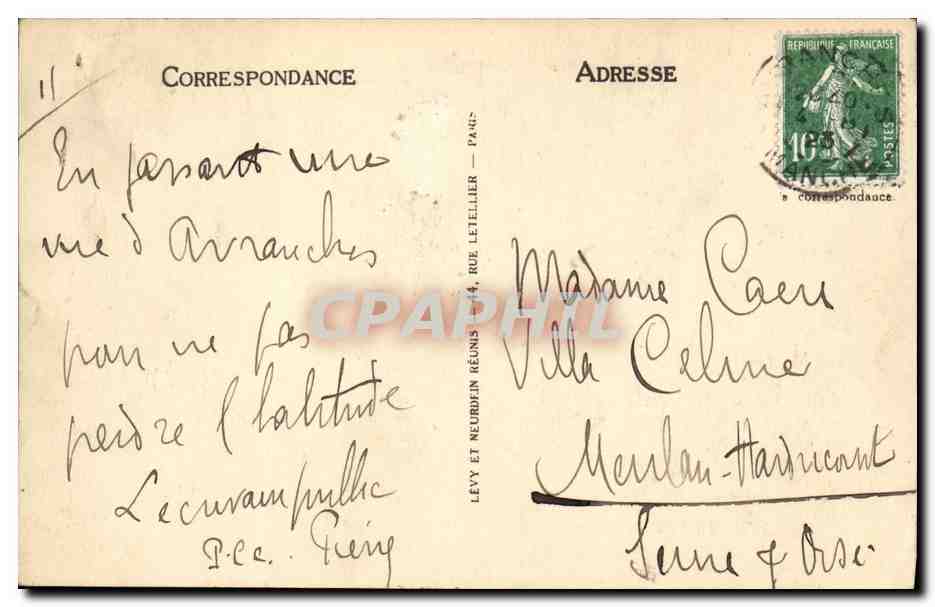 CORRESPONDANCE
En passant une
vue d'Avranches
pour ne pas
perdre l'habitude
L'ecrivain public
P.c.c. Pierre
LÉVY ET NEURDEIN RÉUNIS 44, RUE LETELLIER — PARIS
ADRESSE
REPUBLIQUE FRANÇAISE
10c
POSTES
MANCHE
correspondance
Madame Caen
Villa Celine
Meulan-Hardricourt
Seine & Oise
CPAPHIL